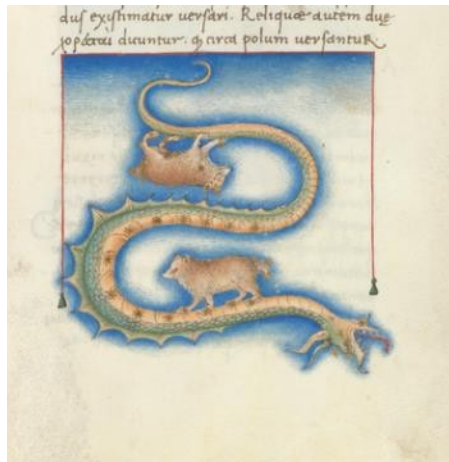 dus existimatur versari. Reliquæ autem duę
dicuntur. circa polum versantur